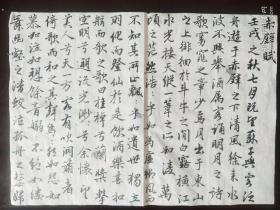 赤壁賦
壬戌之秋七月既望蘇子與客泛
舟遊于赤壁之下清風徐來水
波不興舉酒屬客誦明月之詩
歌窈窕之章少焉月出于東山
之上徘徊于斗牛之間白露橫江
水光接天縱一葦之所如凌萬
頃之茫然浩浩乎如馮虛御風而
不知其所止飄飄乎如遺世獨立
羽化而登仙於是飲酒樂甚扣
舷而歌之歌曰桂棹兮蘭槳擊
空明兮溯流光渺渺兮余懷望
美人兮天一方客有吹洞簫者
倚歌而和之其聲嗚嗚然如怨如
慕如泣如訴餘音嫋嫋不絕如縷
舞幽壑之潛蛟泣孤舟之嫠婦